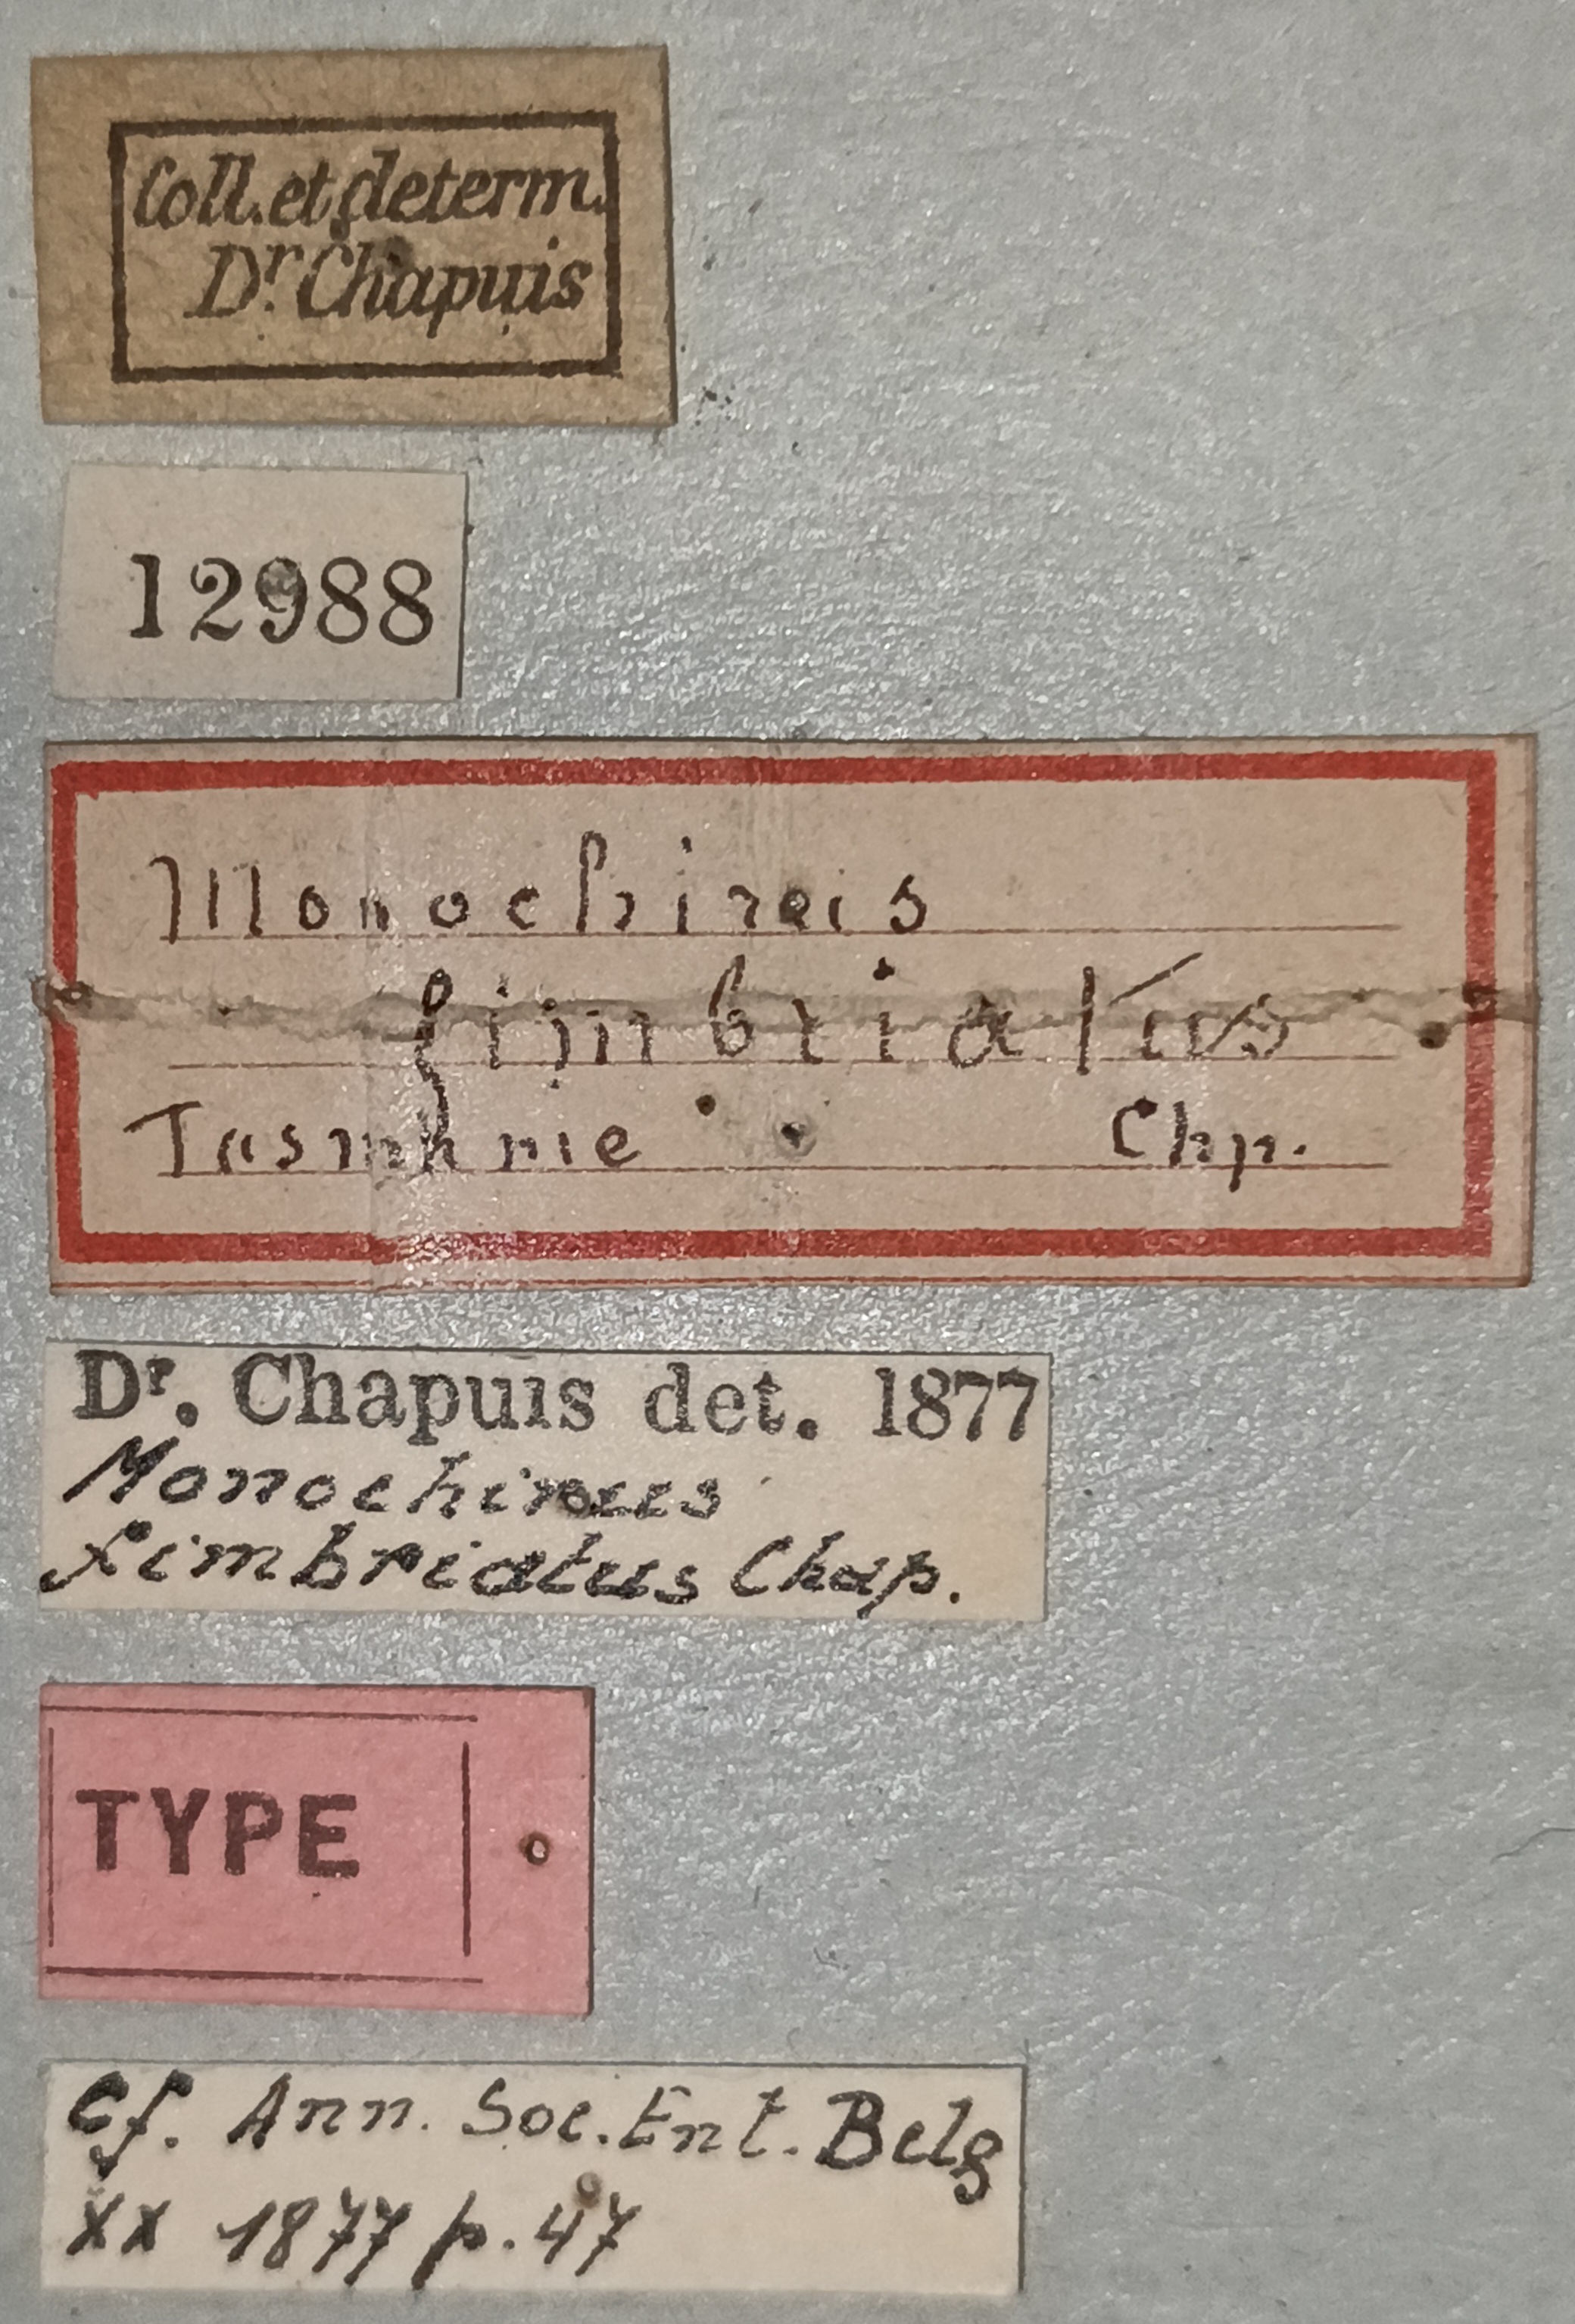 Coll. et determ.
Dr. Chapuis
12988
Monochirus
fimbriatus
Tasmanie Chp.
Dr. Chapuis det. 1877
Monochirus
fimbriatus Chap.
TYPE
cf. Ann. Soc. Ent. Belg
XX 1877 p. 47